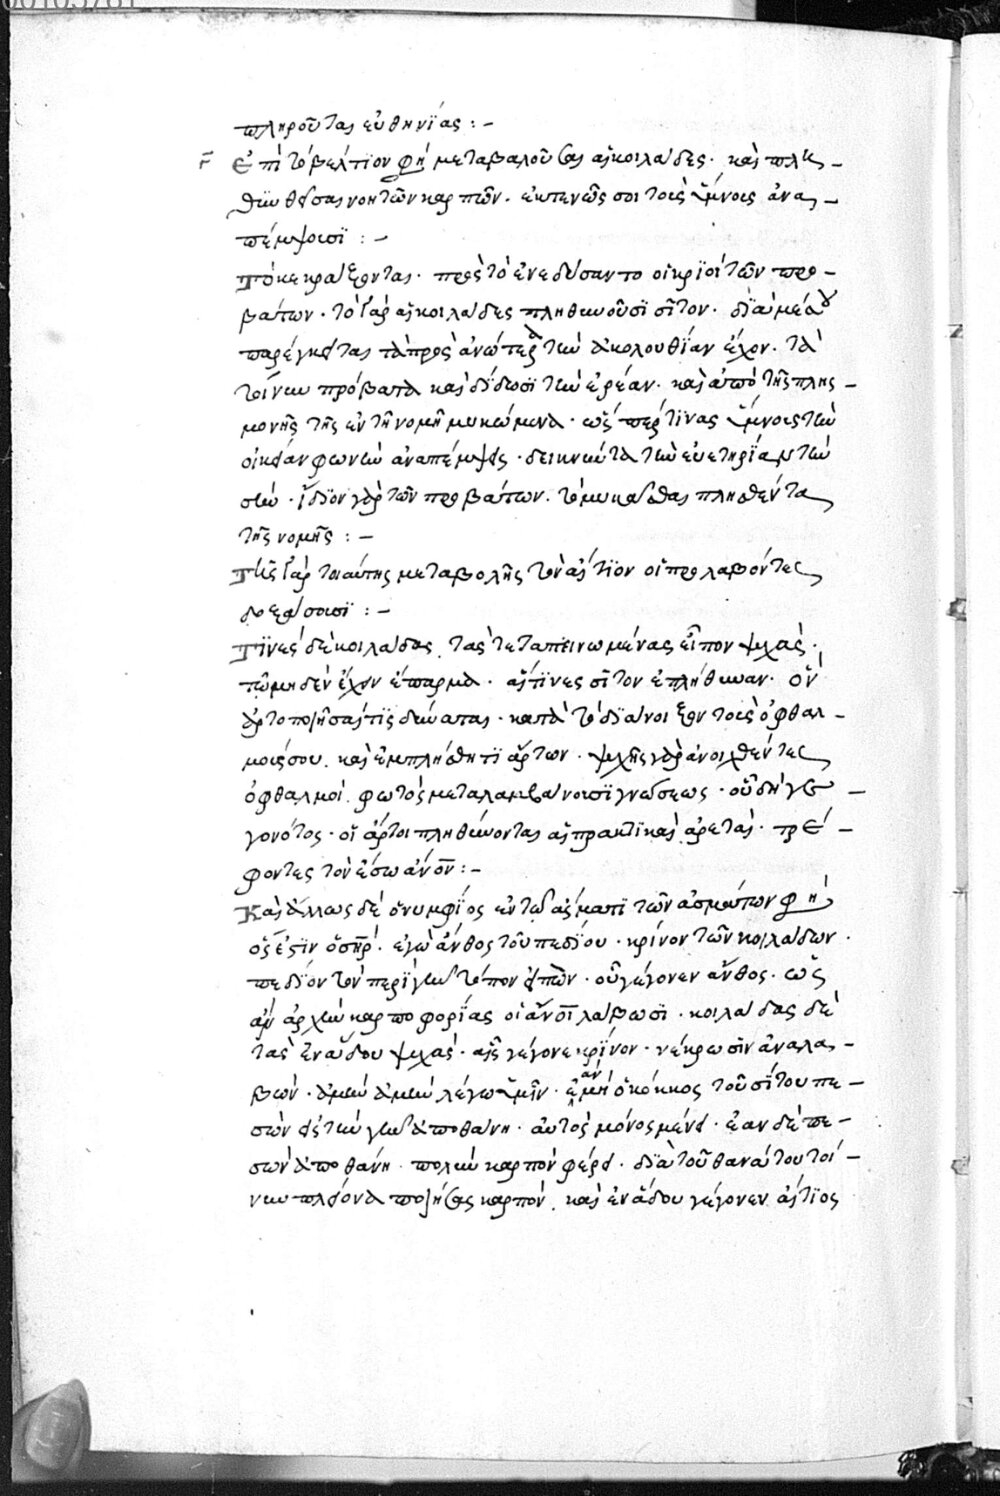 00103781
πληροῦται εὐθηνίας : –
Γ Ἐπὶ τὸ βέλτιον φη μεταβαλοῦσαι αἱ κοιλάδες · καὶ πλη –
θυνθεῖσαι νοητῶν καρπῶν · ἐκτενῶς σοι τοὺς ὕμνους ἀνα –
πέμψουσι : –
Τὸ κεκράξονται · πρὸς τὸ ἐνεδύσαντο οἱ κριοὶ τῶν προ –
βάτων · τὸ γὰρ αἱ κοιλάδες πληθυνοῦσι σῖτον · διὰ μέσου
παρέγκειται τὰ πρὸς ἀνώτερα τὴν ἀκολουθίαν ἔχον · τὰ
τοίνυν πρόβατα καὶ δίδωσι τὴν ἐρέαν · καὶ ἀπὸ τῆς πλης –
μονῆς τῆς ἐν τῇ νομῇ μυκώμενα · ὥσπερ τινας ὕμνους τὴν
οἰκείαν φωνὴν ἀναπέμψει · δεικνύντα τὴν εὐετηρίαν τὴν
σήν · ἴδιον γὰρ τῶν προβάτων · τὸ μυκᾶσθαι πλησθέντα
τῆς νομῆς : –
Τῆς γὰρ τοιαύτης μεταβολῆς τὸν αἴτιον οἱ προλαβόντες
δοξάσουσι : –
Τινὲς δὲ κοιλάδας τὰς τεταπεινωμένας εἶπον ψυχάς ·
πῶ μηδὲν ἔχον ἔπαρμα · αἵτινες σῖτον ἐπλήθυναν · ὃν
ἀρτοποιῆσαί τις δύναται · κατὰ τὸ διάνοιξον τοὺς ὀφθαλ –
μούς σου · καὶ ἐμπλήσθητι ἄρτων · ψυχῆς γὰρ ἀνοιχθέντες
ὀφθαλμοὶ · φωτὸς μεταλαμβάνουσι γνώσεως · οὗ δὴ γε –
γονότος · οἱ ἄρτοι πληθύνονται αἱ πρακτικαὶ ἀρεταὶ · τρέ –
φοντες τὸν ἔσω ἄνον : –
Καὶ ἄλλως δὲ ὁ νυμφίος ἐν τῷ ᾄσματι τῶν ᾀσμάτων φη
ὅς ἐστιν ὁ σηρ · ἐγὼ ἄνθος τοῦ πεδίου · κρίνον τῶν κοιλάδων ·
πεδίον τὸν περίγειον τόπον εἰπὼν · οὗ γέγονεν ἄνθος · ὡς
ἂν ἀρχὴν καρποφορίας οἱ ἄνοι λάβωσι · κοιλάδας δὲ
τὰς ἐν ᾅδου ψυχὰς · αἷς γέγονε κρίνον · νέκρωσιν ἀναλα –
βὼν · ἀμὴν ἀμὴν λέγω ὑμῖν · ἐὰν μὴ ὁ κόκκος τοῦ σίτου πε –
σὼν εἰς τὴν γῆν ἀποθάνῃ · αὐτὸς μόνος μένει · ἐὰν δὲ πε –
σὼν ἀποθάνῃ · πολὺν καρπὸν φέρει · διὰ τοῦ θανάτου τοί –
νυν πλείονα ποιήσας καρπόν · καὶ ἐν ᾅδου γέγονεν αἴτιος